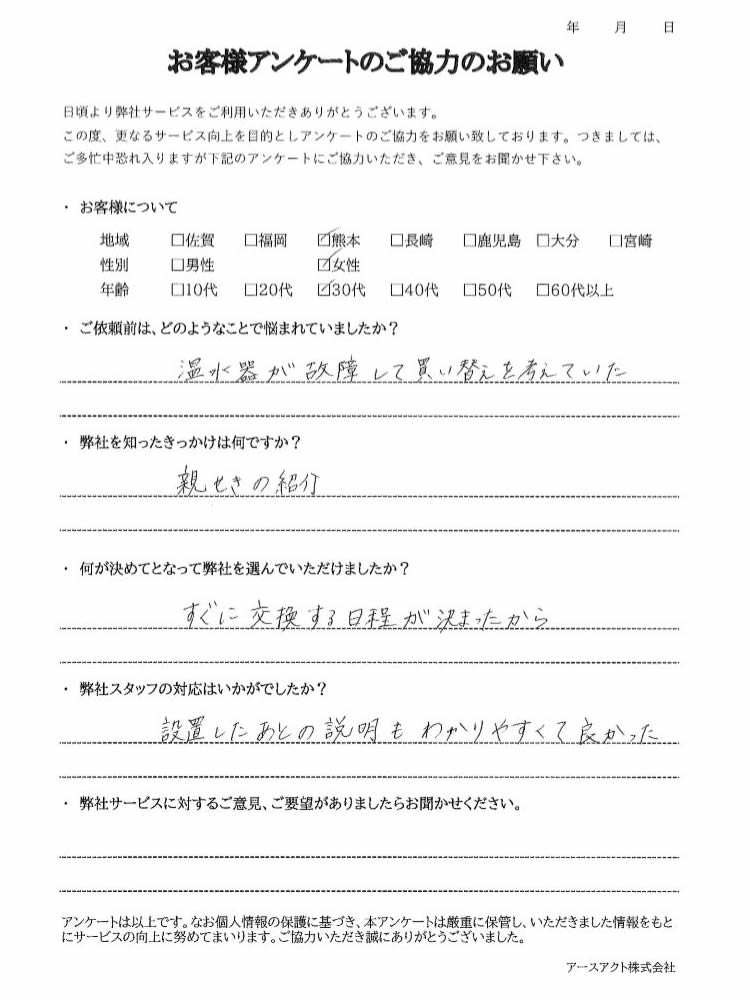 年　月　日
お客様アンケートのご協力のお願い
日頃より弊社サービスをご利用いただきありがとうございます。
この度、更なるサービス向上を目的としアンケートのご協力をお願い致しております。つきましては、
ご多忙中恐れ入りますが下記のアンケートにご協力いただき、ご意見をお聞かせ下さい。
・お客様について
地域　□佐賀　□福岡　☑熊本　□長崎　□鹿児島　□大分　□宮崎
性別　□男性　☑女性
年齢　□10代　□20代　☑30代　□40代　□50代　□60代以上
・ご依頼前は、どのようなことで悩まれていましたか？
温水器が故障して買い替えを考えていた
・弊社を知ったきっかけは何ですか？
親せきの紹介
・何が決めてとなって弊社を選んでいただけましたか？
すぐに交換する日程が決まったから
・弊社スタッフの対応はいかがでしたか？
設置したあとの説明もわかりやすくて良かった
・弊社サービスに対するご意見、ご要望がありましたらお聞かせください。
アンケートは以上です。なお個人情報の保護に基づき、本アンケートは厳重に保管し、いただきました情報をもと
にサービスの向上に努めてまいります。ご協力いただき誠にありがとうございました。
アースアクト株式会社